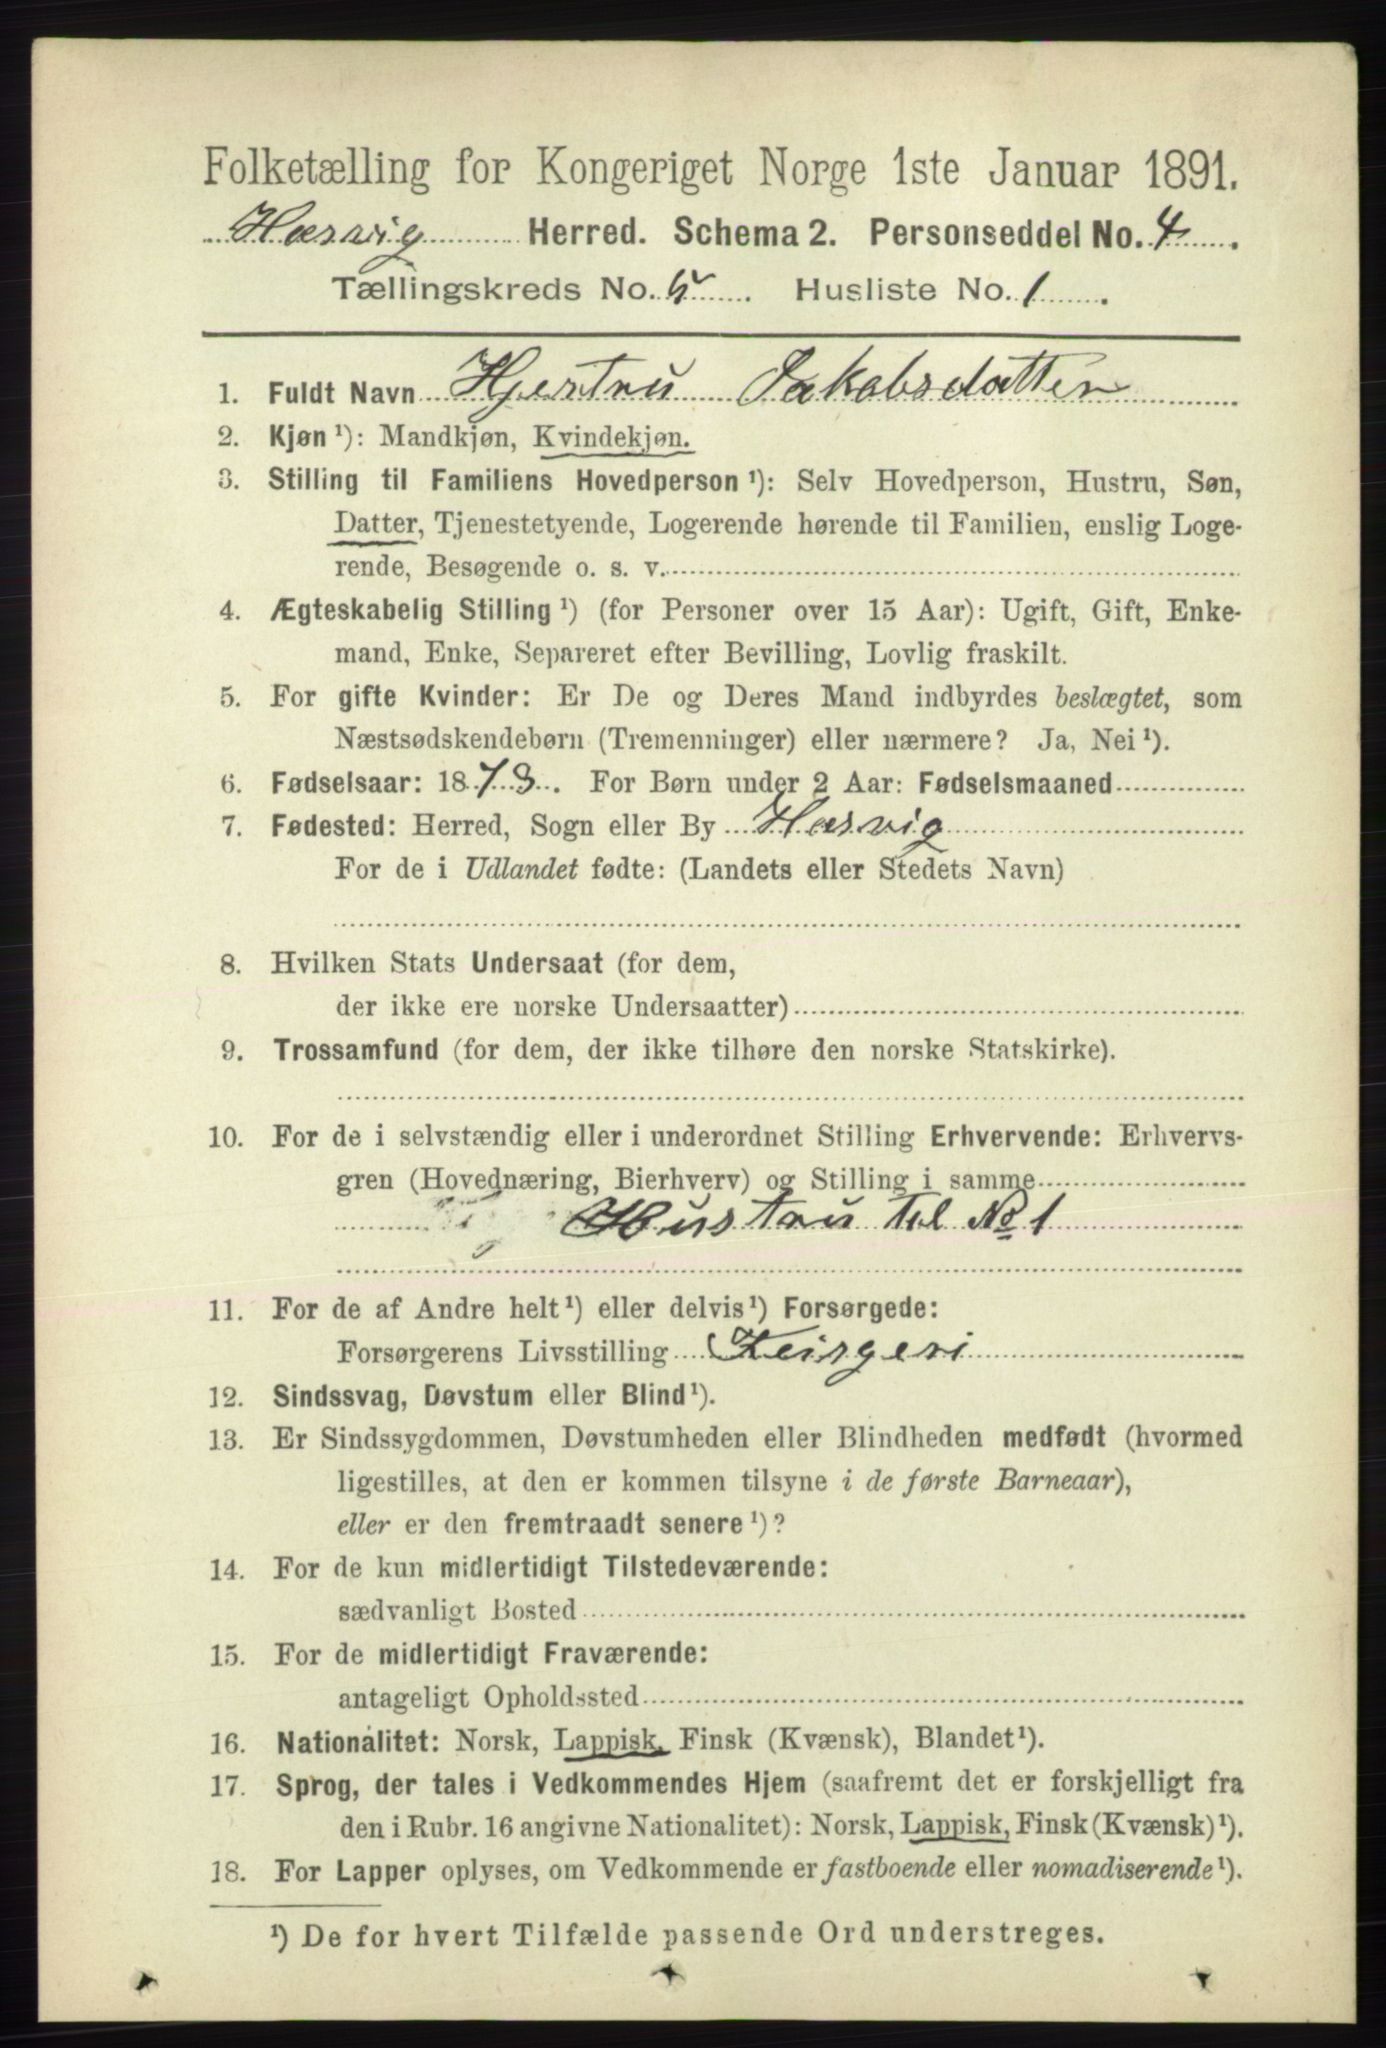 Folketælling for Kongeriget Norge 1ste Januar 1891.
Hasvig Herred. Schema 2. Personseddel No. 4.
Tællingskreds No. 5. Husliste No. 1.
1. Fuldt Navn Hjertru Jakobsdatter
2. Kjøn ¹): Mandkjøn, Kvindekjøn.
3. Stilling til Familiens Hovedperson ¹): Selv Hovedperson, Hustru, Søn,
Datter, Tjenestetyende, Logerende hørende til Familien, enslig Loge-
rende, Besøgende o. s. v.
4. Ægteskabelig Stilling ¹) (for Personer over 15 Aar): Ugift, Gift, Enke-
mand, Enke, Separeret efter Bevilling, Lovlig fraskilt.
5. For gifte Kvinder: Er De og Deres Mand indbyrdes beslægtet, som
Næstsødskendebørn (Tremenninger) eller nærmere? Ja, Nei ¹).
6. Fødselsaar: 1878. For Børn under 2 Aar: Fødselsmaaned
7. Fødested: Herred, Sogn eller By Hasvig
For de i Udlandet fødte: (Landets eller Stedets Navn)
8. Hvilken Stats Undersaat (for dem,
der ikke ere norske Undersaatter)
9. Trossamfund (for dem, der ikke tilhøre den norske Statskirke).
10. For de i selvstændig eller i underordnet Stilling Erhvervende: Erhvervs-
gren (Hovednæring, Bierhverv) og Stilling i samme
Hustru til No 1
11. For de af Andre helt ¹) eller delvis ¹) Forsørgede:
Forsørgerens Livsstilling
12. Sindssvag, Døvstum eller Blind ¹).
13. Er Sindssygdommen, Døvstumheden eller Blindheden medfødt (hvormed
ligestilles, at den er kommen tilsyne i de første Barneaar),
eller er den fremtraadt senere ¹)?
14. For de kun midlertidigt Tilstedeværende:
sædvanligt Bosted
15. For de midlertidigt Fraværende:
antageligt Opholdssted
16. Nationalitet: Norsk, Lappisk, Finsk (Kvænsk), Blandet ¹).
17. Sprog, der tales i Vedkommendes Hjem (saafremt det er forskjelligt fra
den i Rubr. 16 angivne Nationalitet): Norsk, Lappisk, Finsk (Kvænsk) ¹).
18. For Lapper oplyses, om Vedkommende er fastboende eller nomadiserende ¹).
¹) De for hvert Tilfælde passende Ord understreges.